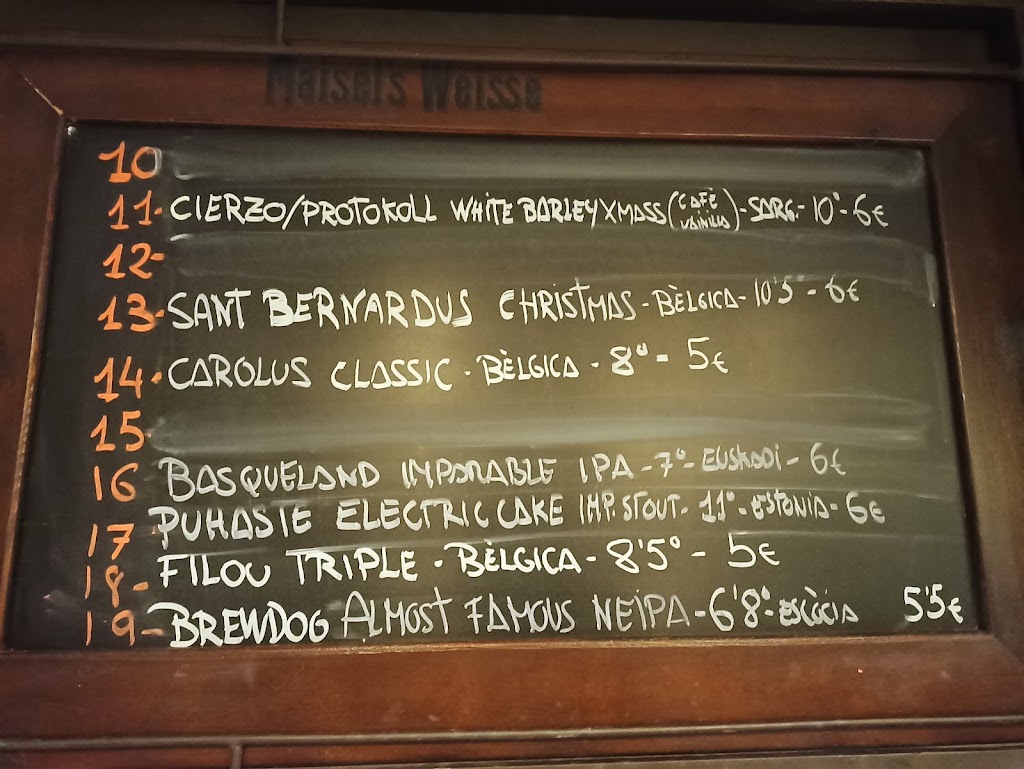 Maisel's Weisse
10
11- CIERZO/PROTOKOLL WHITE BARLEY XMASS (CAFÈ VAINILLA) - SARG. - 10° - 6€
12-
13- SANT BERNARDUS CHRISTMAS - BÈLGICA - 10'5° - 6€
14- CAROLUS CLASSIC - BÈLGICA - 8° - 5€
15
16 BASQUELAND IMPARABLE IPA - 7° - EUSKADI - 6€
17 PUHASTE ELECTRIC CAKE IMP. STOUT - 11° - ESTONIA - 6€
18- FILOU TRIPLE - BÈLGICA - 8'5° - 5€
19- BREWDOG ALMOST FAMOUS NEIPA - 6'8° - ESCÒCIA 5'5€